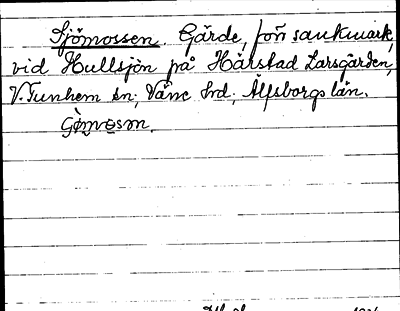 Sjömossen. Gärde, förr sankmark,
vid Hullsjön på Hårstad Larsgården,
V. Tunhem sn; Väne hd; Älfsborgs län.